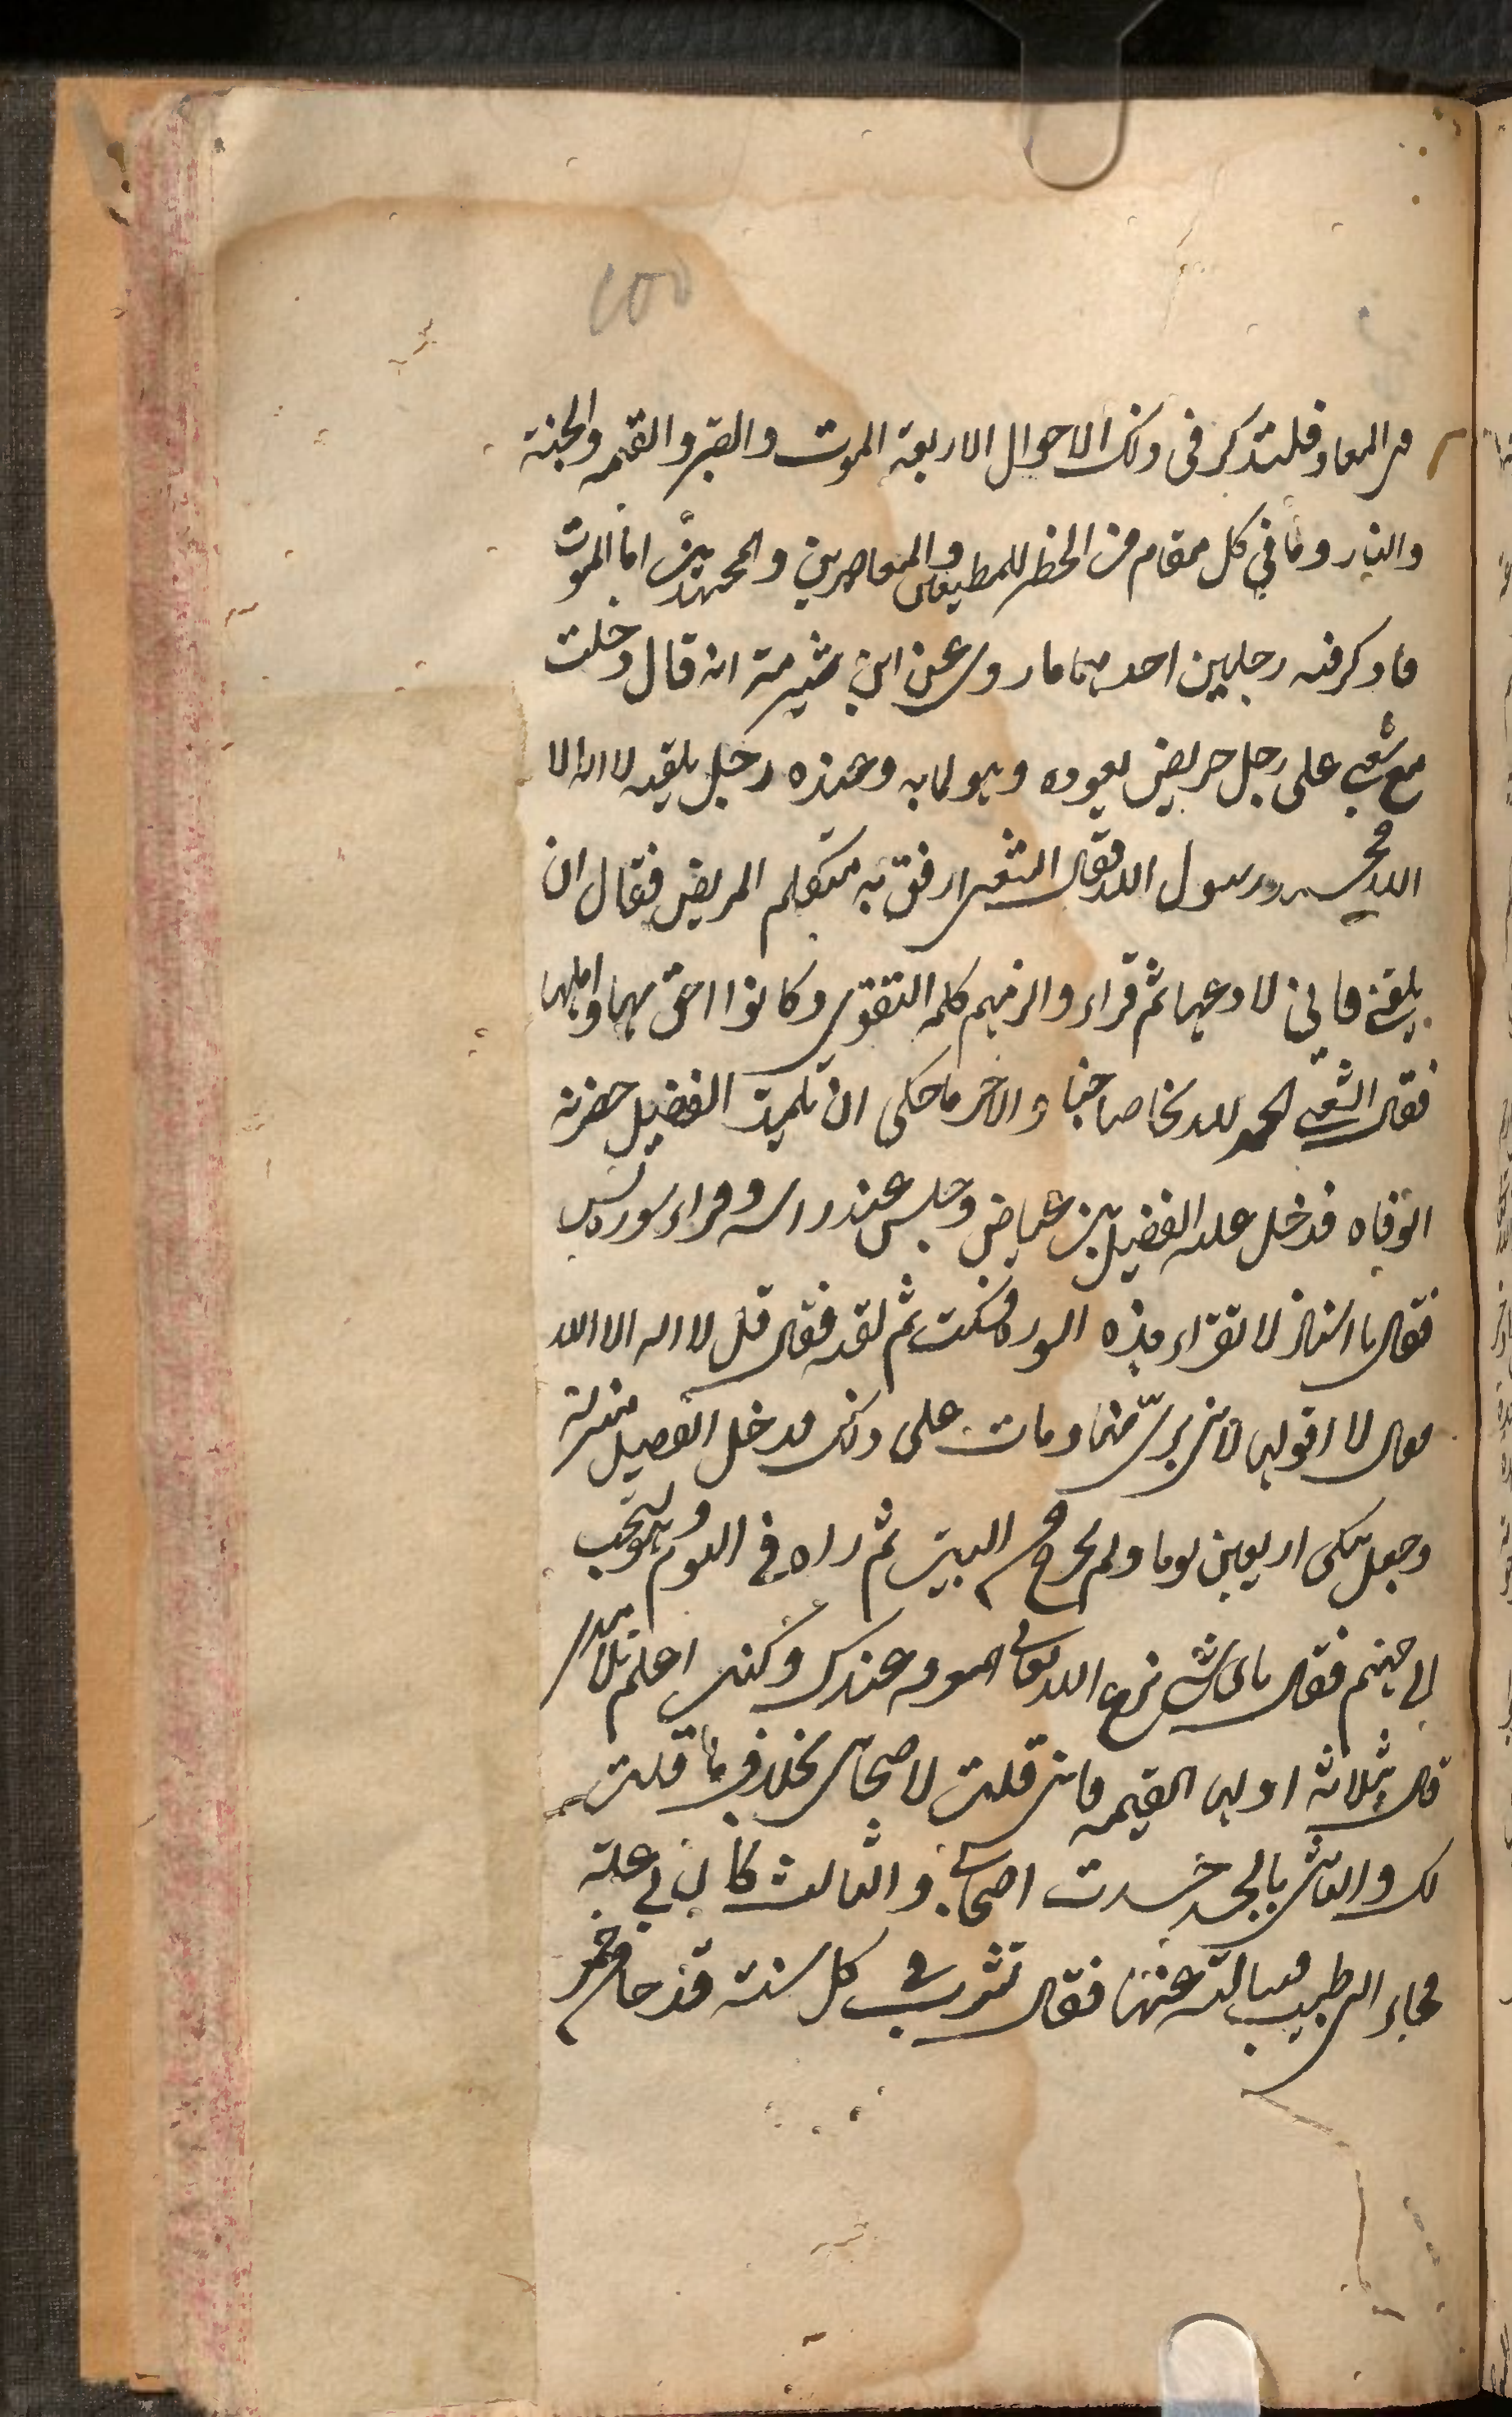 من المعاد فلتذكر فى ذلك الاحوال الاربعة الموت والقبر والقيمه والجنة
والنار وما في كل مقام من الخطر للمطيعين والمعاصرين والمجتهدين اما الموت
فاذكر فيه رجلين احدهما ما روى عن ابن شبرمة انه قال دخلت
مع شعبى على رجل مريض يعوده وهو لمابه وعنده رجل يلقنه لا اله الا
الله محمد رسول الله فقال الشعبى ارفق به فتكلم المريض فقال ان
يلقنى فانى لا ادعها ثم قراء والزمهم كلمة التقوى وكانوا احق بها واهلها
فقال الشعبى الحمد لله نجا صاحبنا والاخر ما حكى ان تلميذ الفضيل حضرته
الوفاه فدخل عليه الفضيل بن عياض وجلس عند راسه وقراء سوره يس
فقال يا استاذ لا تقراء هذه السوره فسكت ثم لقنه فقال قل لا اله الا الله
فقال لا اقولها لانى برئ منها ومات على ذلك فدخل الفضيل منزله
وجعل يبكى اربعين يوما ولم يخرج من البيت ثم راه في النوم وهو يسحب
الى جهنم فقال باى شى نزع الله تعالى المعرفه عنك وكنت اعلم تلامذتى
قال بثلاثة اولها النميمه فانى قلت لاصحابى بخلاف ما قلت
لك والثانى بالحسد حسدت اصحابى والثالث كان بى علة
فجاء الى طبيب فسالته عنها فقال تشرب في كل سنة قدحا من خمر